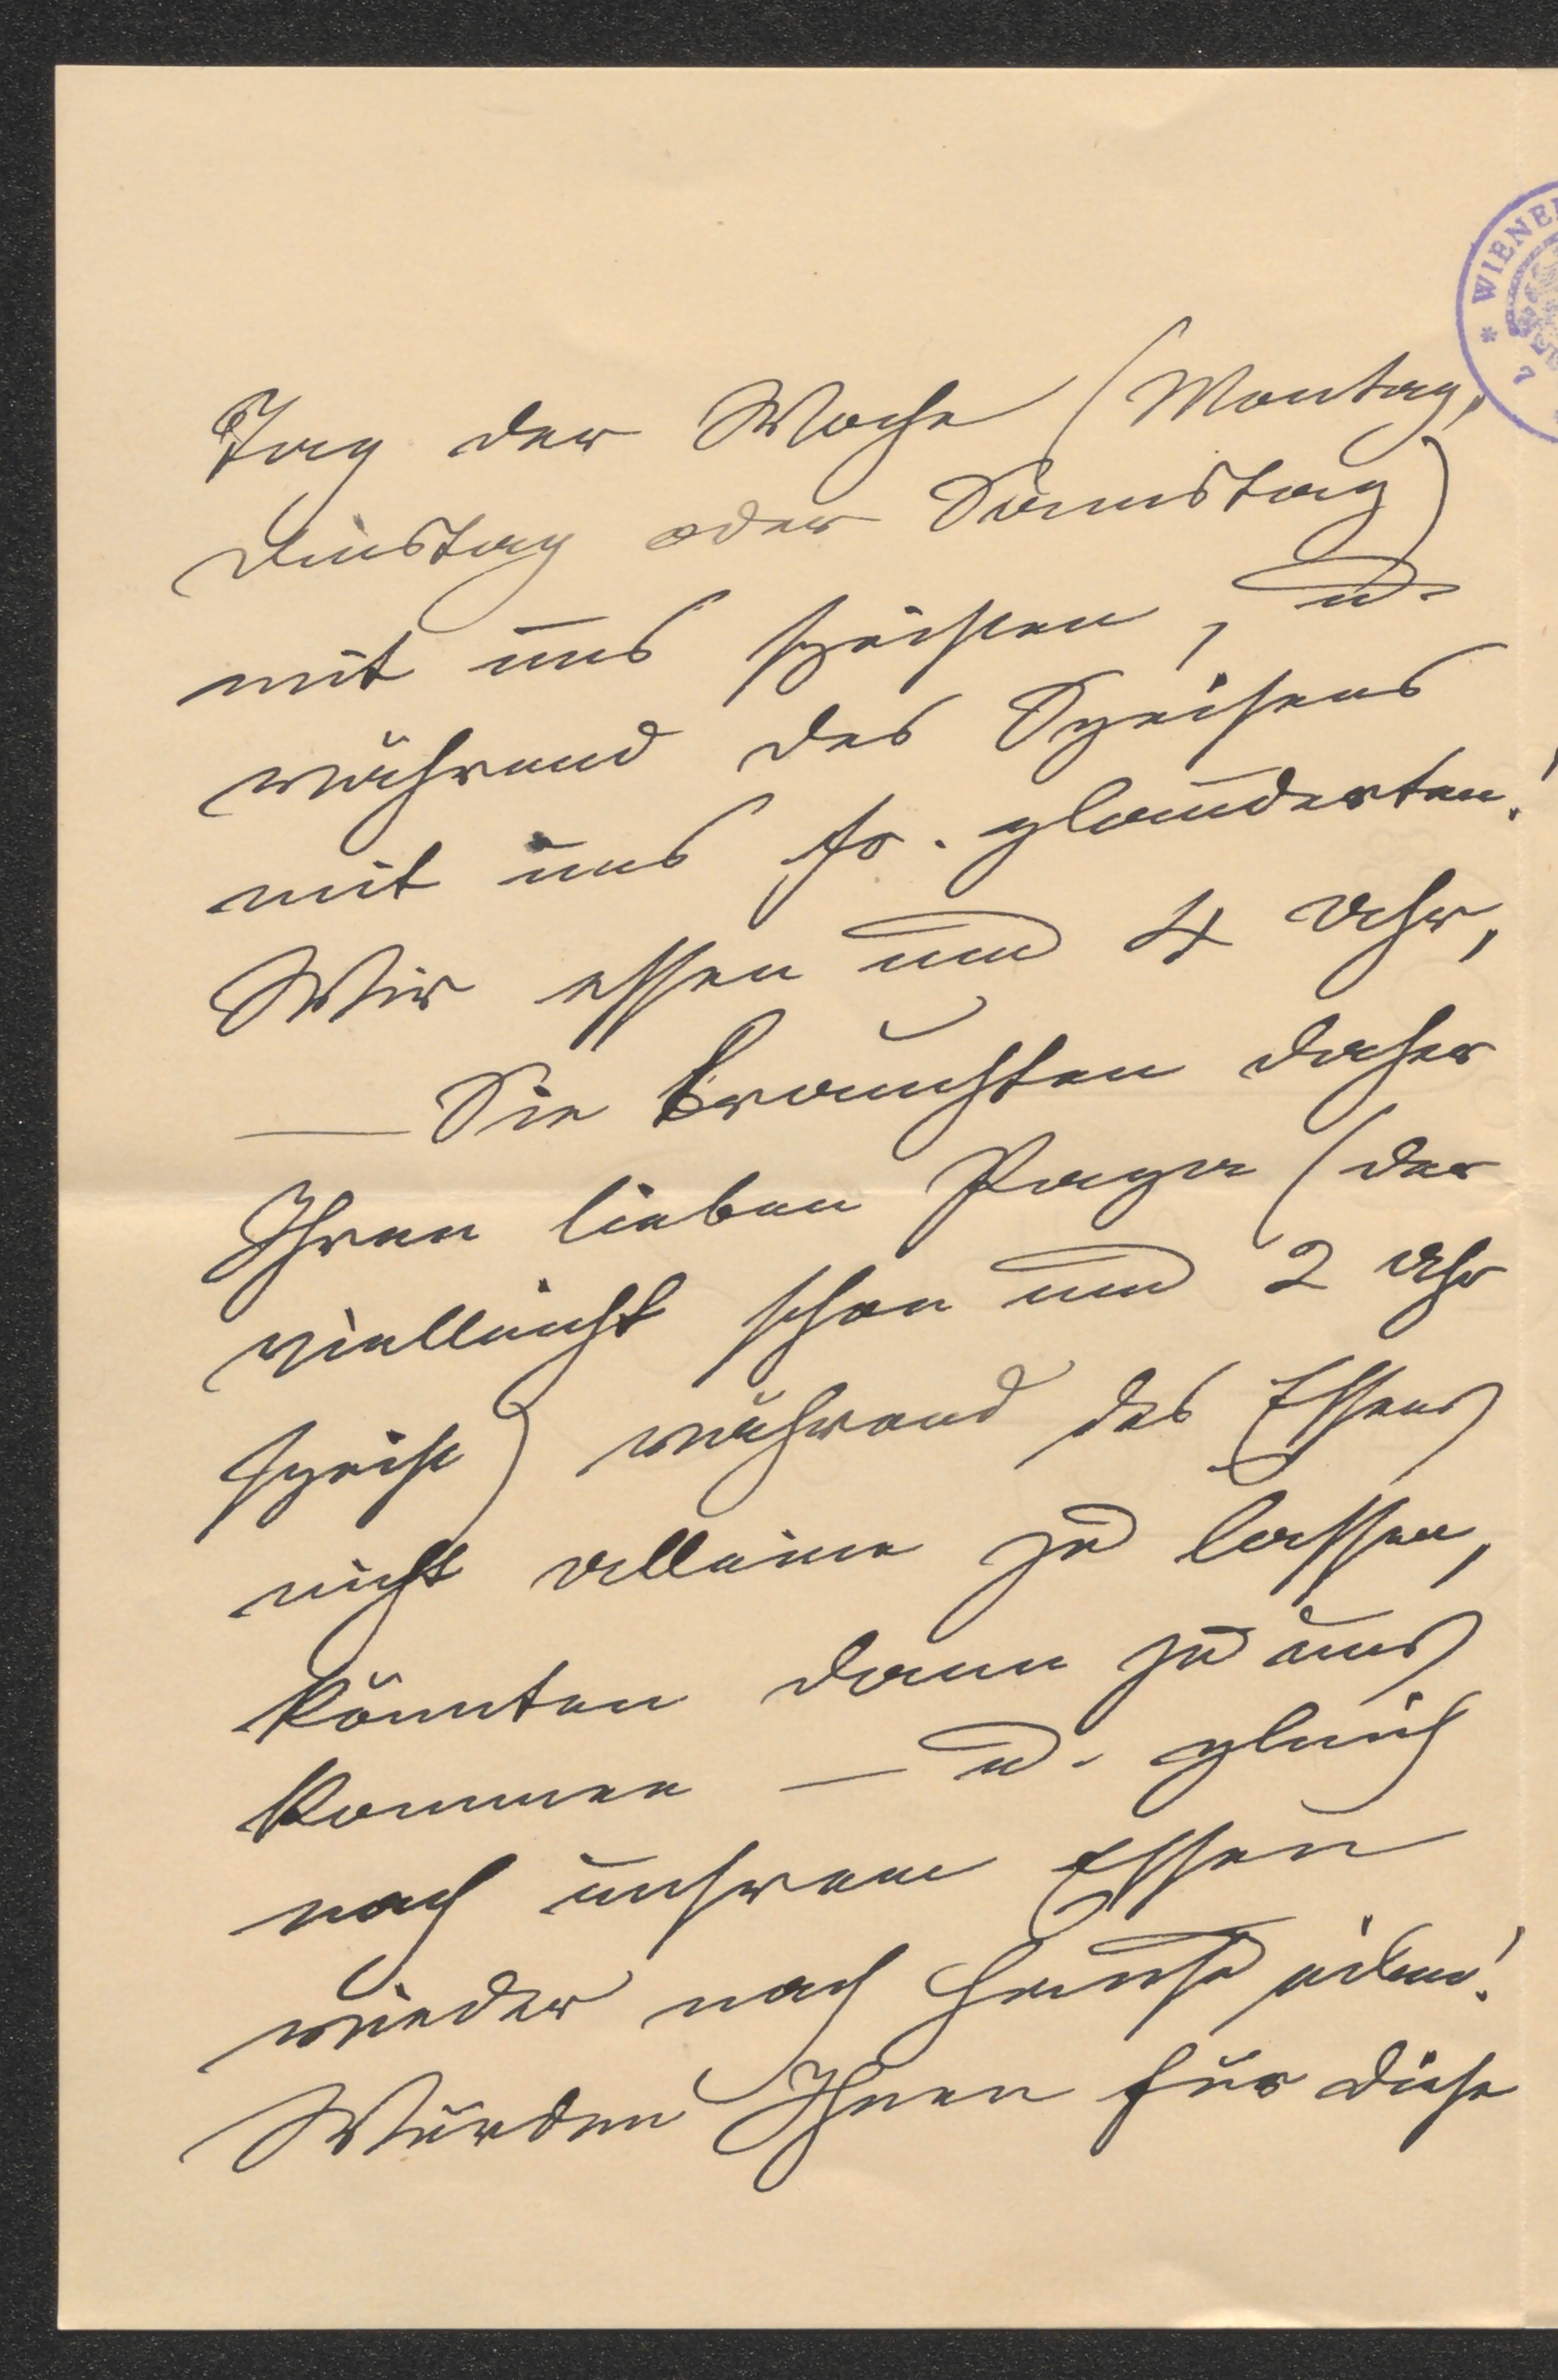 Tag der Woche (Montag,
Dinstag oder Samstag)
mit uns speisten, u.
während des Speisens
mit uns fr. plauderten!
Wir essen um 4 Uhr,
— Sie brauchten daher
Ihren lieben Papa (der
vielleicht schon um 2 Uhr
speist) während des Essens
nicht alleine zu lassen,
könnten dann zu uns
kommen — u. gleich
nach unsrem Essen
wieder nach Hause eilen!
Würden Ihnen für diese
WIENE
7